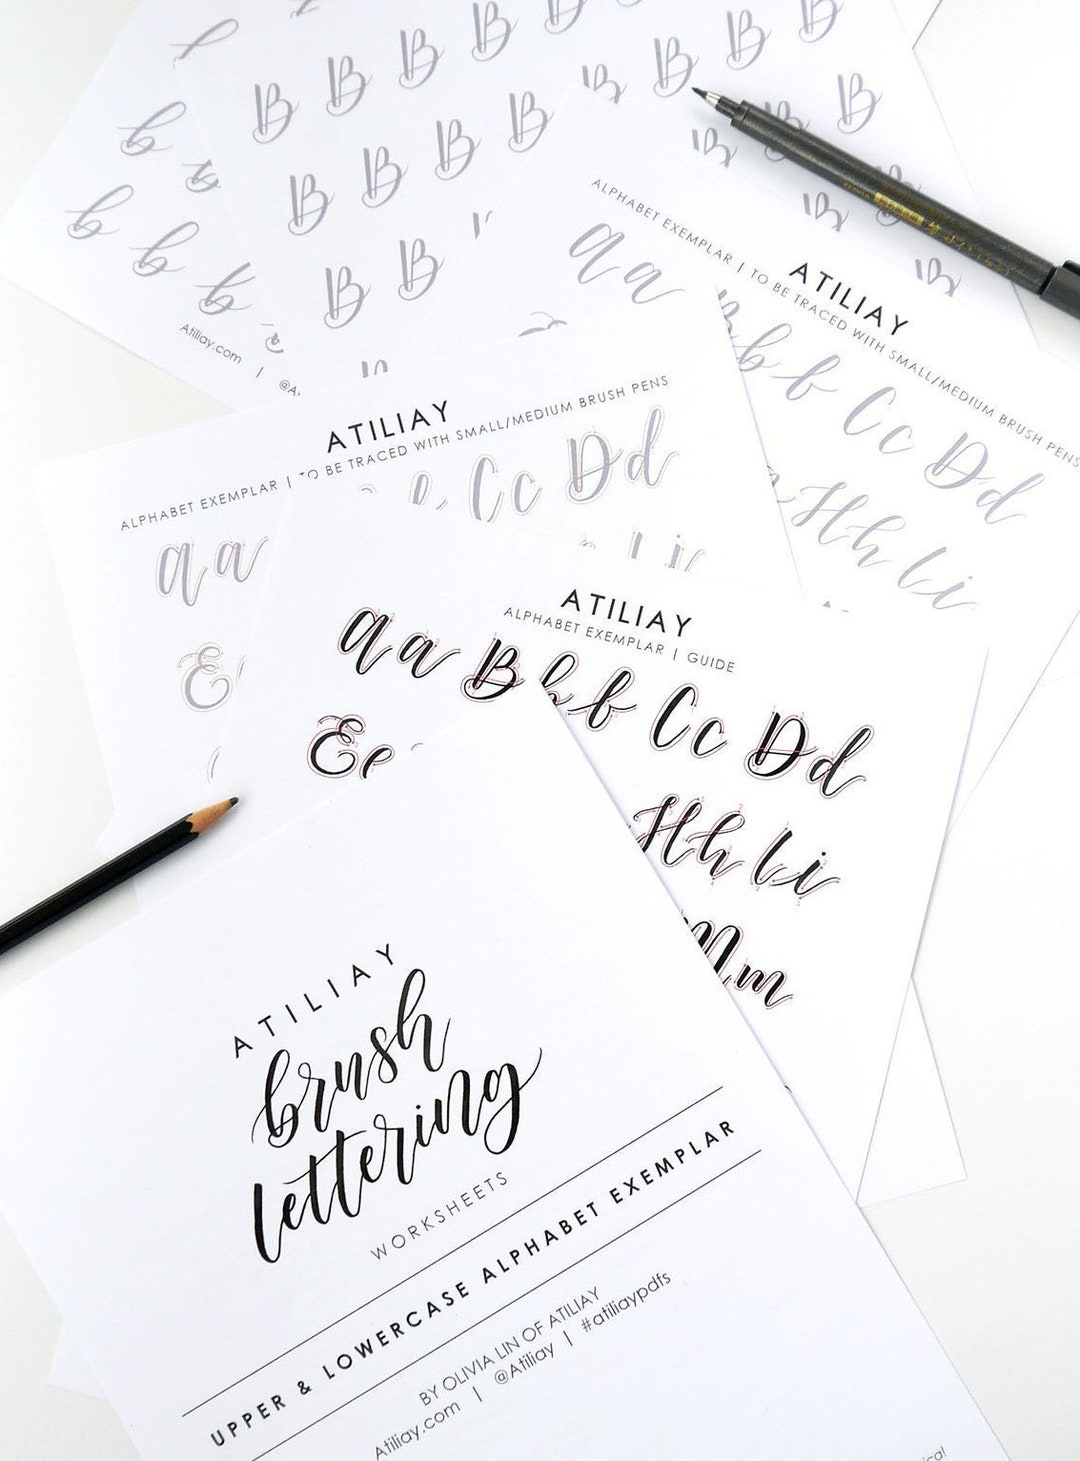 b
B B B B B B
B B B B B B
B B B B
b b b
B B
Atiliay.com | @A
ATILIAY
ALPHABET EXEMPLAR | TO BE TRACED WITH SMALL/MEDIUM BRUSH PENS
a a B b b Cc Dd
Hh Ii
ATILIAY
ALPHABET EXEMPLAR | TO BE TRACED WITH SMALL/MEDIUM BRUSH PENS
a a Cc Dd
E
ATILIAY
ALPHABET EXEMPLAR | GUIDE
a a B b b Cc Dd
E e Hh Ii
Mm
ATILIAY
brush
lettering
WORKSHEETS
UPPER & LOWERCASE ALPHABET EXEMPLAR
BY OLIVIA LIN OF ATILIAY
Atiliay.com | @Atiliay | #atiliaypdfs